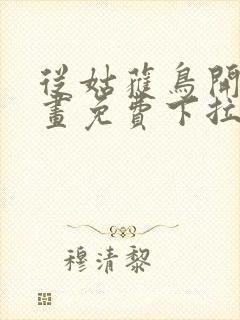 從姑獲鳥開
畫免費下拉
穆清黎